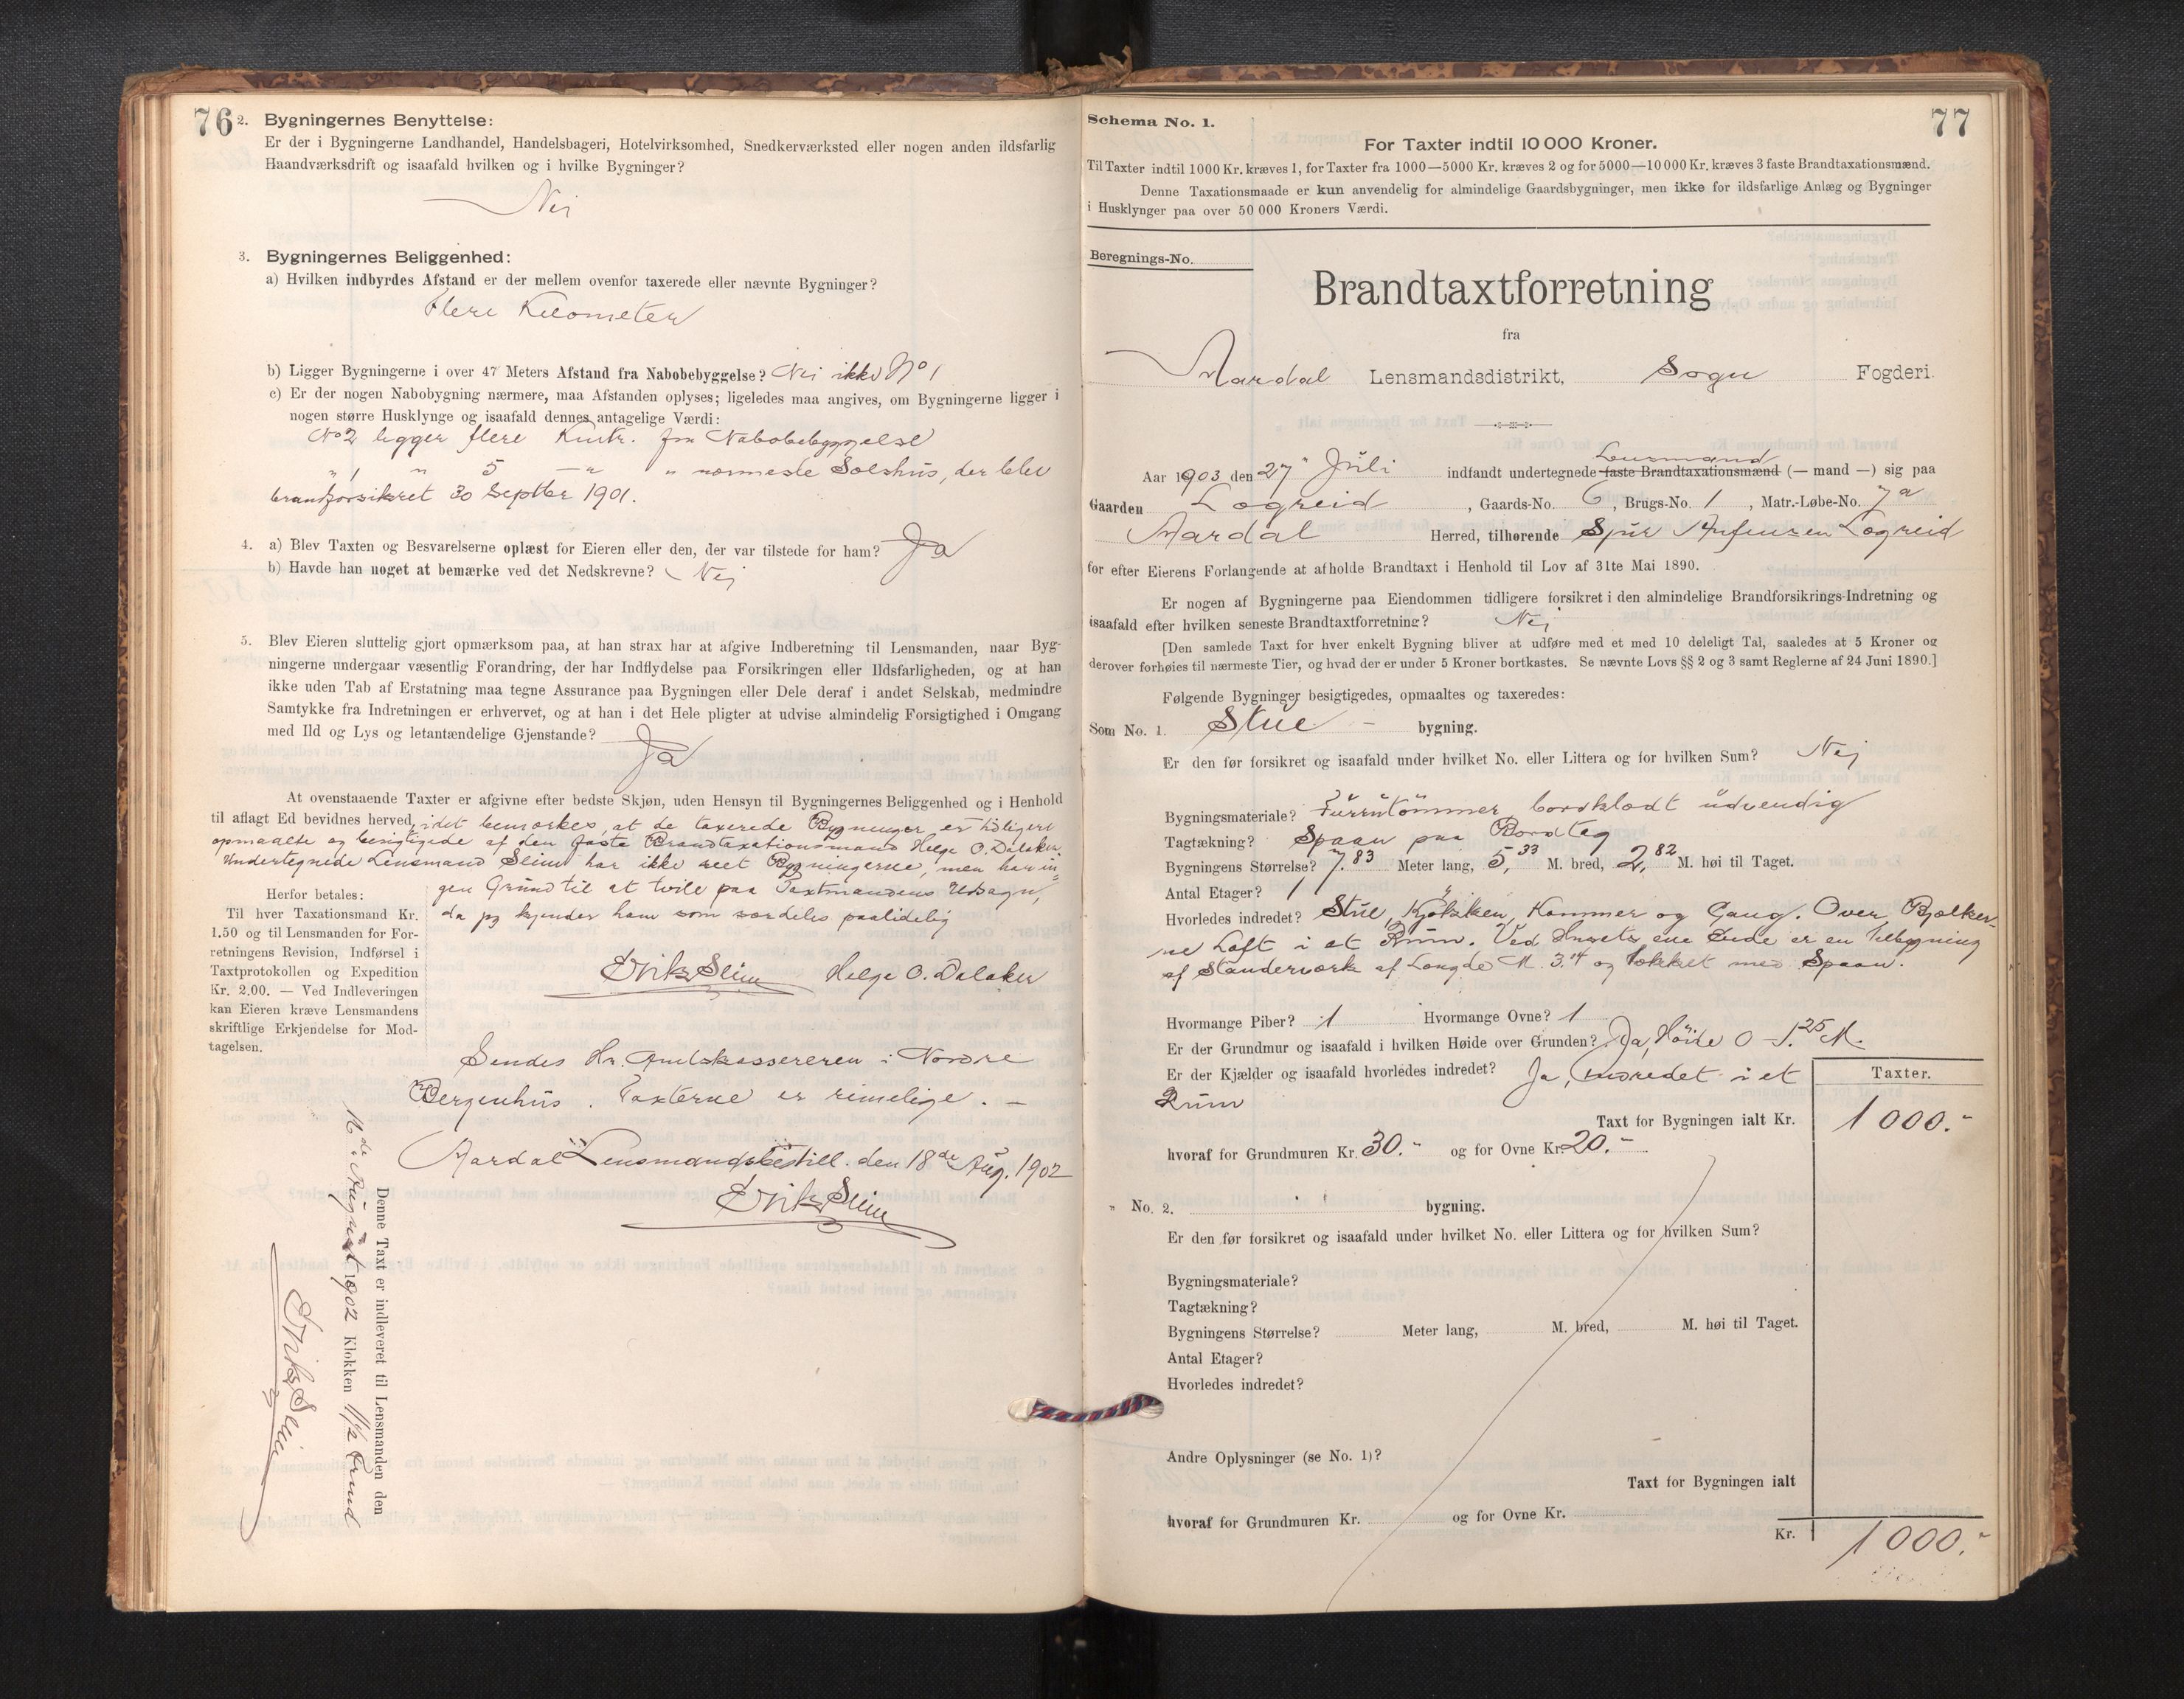 76
2. Bygningernes Benyttelse:
Er der i Bygningerne Landhandel, Handelsbageri, Hotelvirksomhed, Snedkerværksted eller nogen anden ildsfarlig
Haandværksdrift og isaafald hvilken og i hvilke Bygninger?
Nei
3. Bygningernes Beliggenhed:
a) Hvilken indbyrdes Afstand er der mellem ovenfor taxerede eller nævnte Bygninger?
Flere Kilometer
b) Ligger Bygningerne i over 47 Meters Afstand fra Nabobebyggelse? Nei ikke No 1
c) Er der nogen Nabobygning nærmere, maa Afstanden oplyses; ligeledes maa angives, om Bygningerne ligger i
nogen større Husklynge og isaafald dennes antagelige Værdi:
No 2 ligger flere Kmtr. fra Nabobebyggelse
" 1 " 5 — " " nærmeste Sælshus, der blev
brandforsikret 30 Septber 1901.
4. a) Blev Taxten og Besvarelserne oplæst for Eieren eller den, der var tilstede for ham? Ja
b) Havde han noget at bemærke ved det Nedskrevne? Nej
5. Blev Eieren sluttelig gjort opmærksom paa, at han strax har at afgive Indberetning til Lensmanden, naar Byg-
ningerne undergaar væsentlig Forandring, der har Indflydelse paa Forsikringen eller Ildsfarligheden, og at han
ikke uden Tab af Erstatning maa tegne Assurance paa Bygningen eller Dele deraf i andet Selskab, medmindre
Samtykke fra Indretningen er erhvervet, og at han i det Hele pligter at udvise almindelig Forsigtighed i Omgang
med Ild og Lys og letantændelige Gjenstande?
Ja
At ovenstaaende Taxter er afgivne efter bedste Skjøn, uden Hensyn til Bygningernes Beliggenhed og i Henhold
til aflagt Ed bevidnes herved, idet bemærkes, at de taxerede Bygninger er tidligere
opmaalte og besigtigede af den faste Brandtaxationsmand Helge O. Dalaker.
Undertegnede Lensmand Slim har ikke seet Bygningerne, men har in-
gen Grund til at tvile paa Taxtmandens Udsagn,
da jeg kjender ham som særdeles paalidelig
Herfor betales:
Til hver Taxationsmand Kr.
1.50 og til Lensmanden for For-
retningens Revision, Indførsel i
Taxtprotokollen og Expedition
Kr. 2.00. — Ved Indleveringen
kan Eieren kræve Lensmandens
skriftlige Erkjendelse for Mod-
tagelsen.
Erik Slim Helge O. Dalaker
Sendes Hr. Amtskassereren i Nordre
Bergenhus. Taxterne er rimelige. —
Aardal Lensmandsbestill. den 18de Aug. 1902
Erik Slim
Denne Taxt er indleveret til Lensmanden den
16de August 1902 Klokken 11½ Formd
Erik Slim
77
Schema No. 1.
For Taxter indtil 10 000 Kroner.
Til Taxter indtil 1000 Kr. kræves 1, for Taxter fra 1000—5000 Kr. kræves 2 og for 5000—10 000 Kr. kræves 3 faste Brandtaxationsmænd.
Denne Taxationsmaade er kun anvendelig for almindelige Gaardsbygninger, men ikke for ildsfarlige Anlæg og Bygninger
i Husklynger paa over 50 000 Kroners Værdi.
Beregnings-No.
Brandtaxtforretning
fra
Aardal Lensmandsdistrikt, Sogn Fogderi.
Lensmand
Aar 1903 den 27 Juli indfandt undertegnede faste Brandtaxationsmænd (— mand —) sig paa
Gaarden Løgreid, Gaards-No. 6, Brugs-No. 1, Matr.-Løbe-No. 7a
Aardal Herred, tilhørende Sjur Anfensen Løgreid
for efter Eierens Forlangende at afholde Brandtaxt i Henhold til Lov af 31te Mai 1890.
Er nogen af Bygningerne paa Eiendommen tidligere forsikret i den almindelige Brandforsikrings-Indretning og
isaafald efter hvilken seneste Brandtaxtforretning? Nej
[Den samlede Taxt for hver enkelt Bygning bliver at udføre med et med 10 deleligt Tal, saaledes at 5 Kroner og
derover forhøies til nærmeste Tier, og hvad der er under 5 Kroner bortkastes. Se nævnte Lovs §§ 2 og 3 samt Reglerne af 24 Juni 1890.]
Følgende Bygninger besigtigedes, opmaaltes og taxeredes:
Som No. 1. Stue - bygning.
Er den før forsikret og isaafald under hvilket No. eller Littera og for hvilken Sum? Nej
Bygningsmateriale? Furutømmer bordklædt udvendig
Tagtækning? Spaan paa Bordtag
Bygningens Størrelse? 7.83 Meter lang, 5,33 M. bred, 2,82 M. høi til Taget.
Antal Etager? 1
Hvorledes indredet? Stue, Kjøkken, Kammer og Gang. Over Bjælker-
ne Loft i et Rum. Ved Husets ene Ende er en Tilbygning
af Standerværk af Længde M. 3.14 og tækket med Spaan.
Hvormange Piber? 1 Hvormange Ovne? 1
Er der Grundmur og isaafald i hvilken Høide over Grunden? Ja, Höide 0 - 1.25 M.
Er der Kjælder og isaafald hvorledes indredet? Ja, indredet i et
Rum
Taxter.
Taxt for Bygningen ialt Kr. 1 000.-
hvoraf for Grundmuren Kr. 30.- og for Ovne Kr. 20.-
" No. 2. bygning.
Er den før forsikret og isaafald under hvilket No. eller Littera og for hvilken Sum?
Bygningsmateriale?
Tagtækning?
Bygningens Størrelse? Meter lang, M. bred, M. høi til Taget.
Antal Etager?
Hvorledes indredet?
Andre Oplysninger (se No. 1)?
Taxt for Bygningen ialt
hvoraf for Grundmuren Kr. og for Ovne Kr.
Kr. 1 000.-